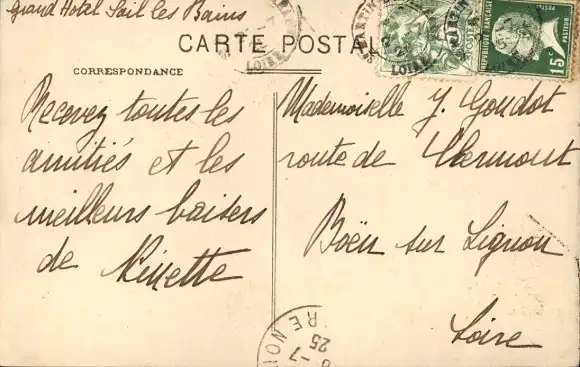 Grand Hotel Sail les Bains
CARTE POSTALE
CORRESPONDANCE
Recevez toutes les
amitiés et les
meilleurs baisers
de Ninette
Mademoiselle J. Goudot
route de Clermont
Boën sur Lignon
Loire
LOIRE
LOIRE
REPUBLIQUE FRANÇAISE
POSTES
PASTEUR
15c
25